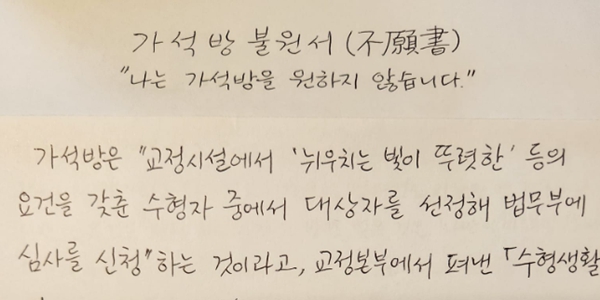 가석방 불원서 (不願書)
"나는 가석방을 원하지 않습니다."
가석방은 "교정시설에서 '뉘우치는 빛이 뚜렷한' 등의
요건을 갖춘 수형자 중에서 대상자를 선정해 법무부에
심사를 신청"하는 것이라고, 교정본부에서 펴낸 「수형생활